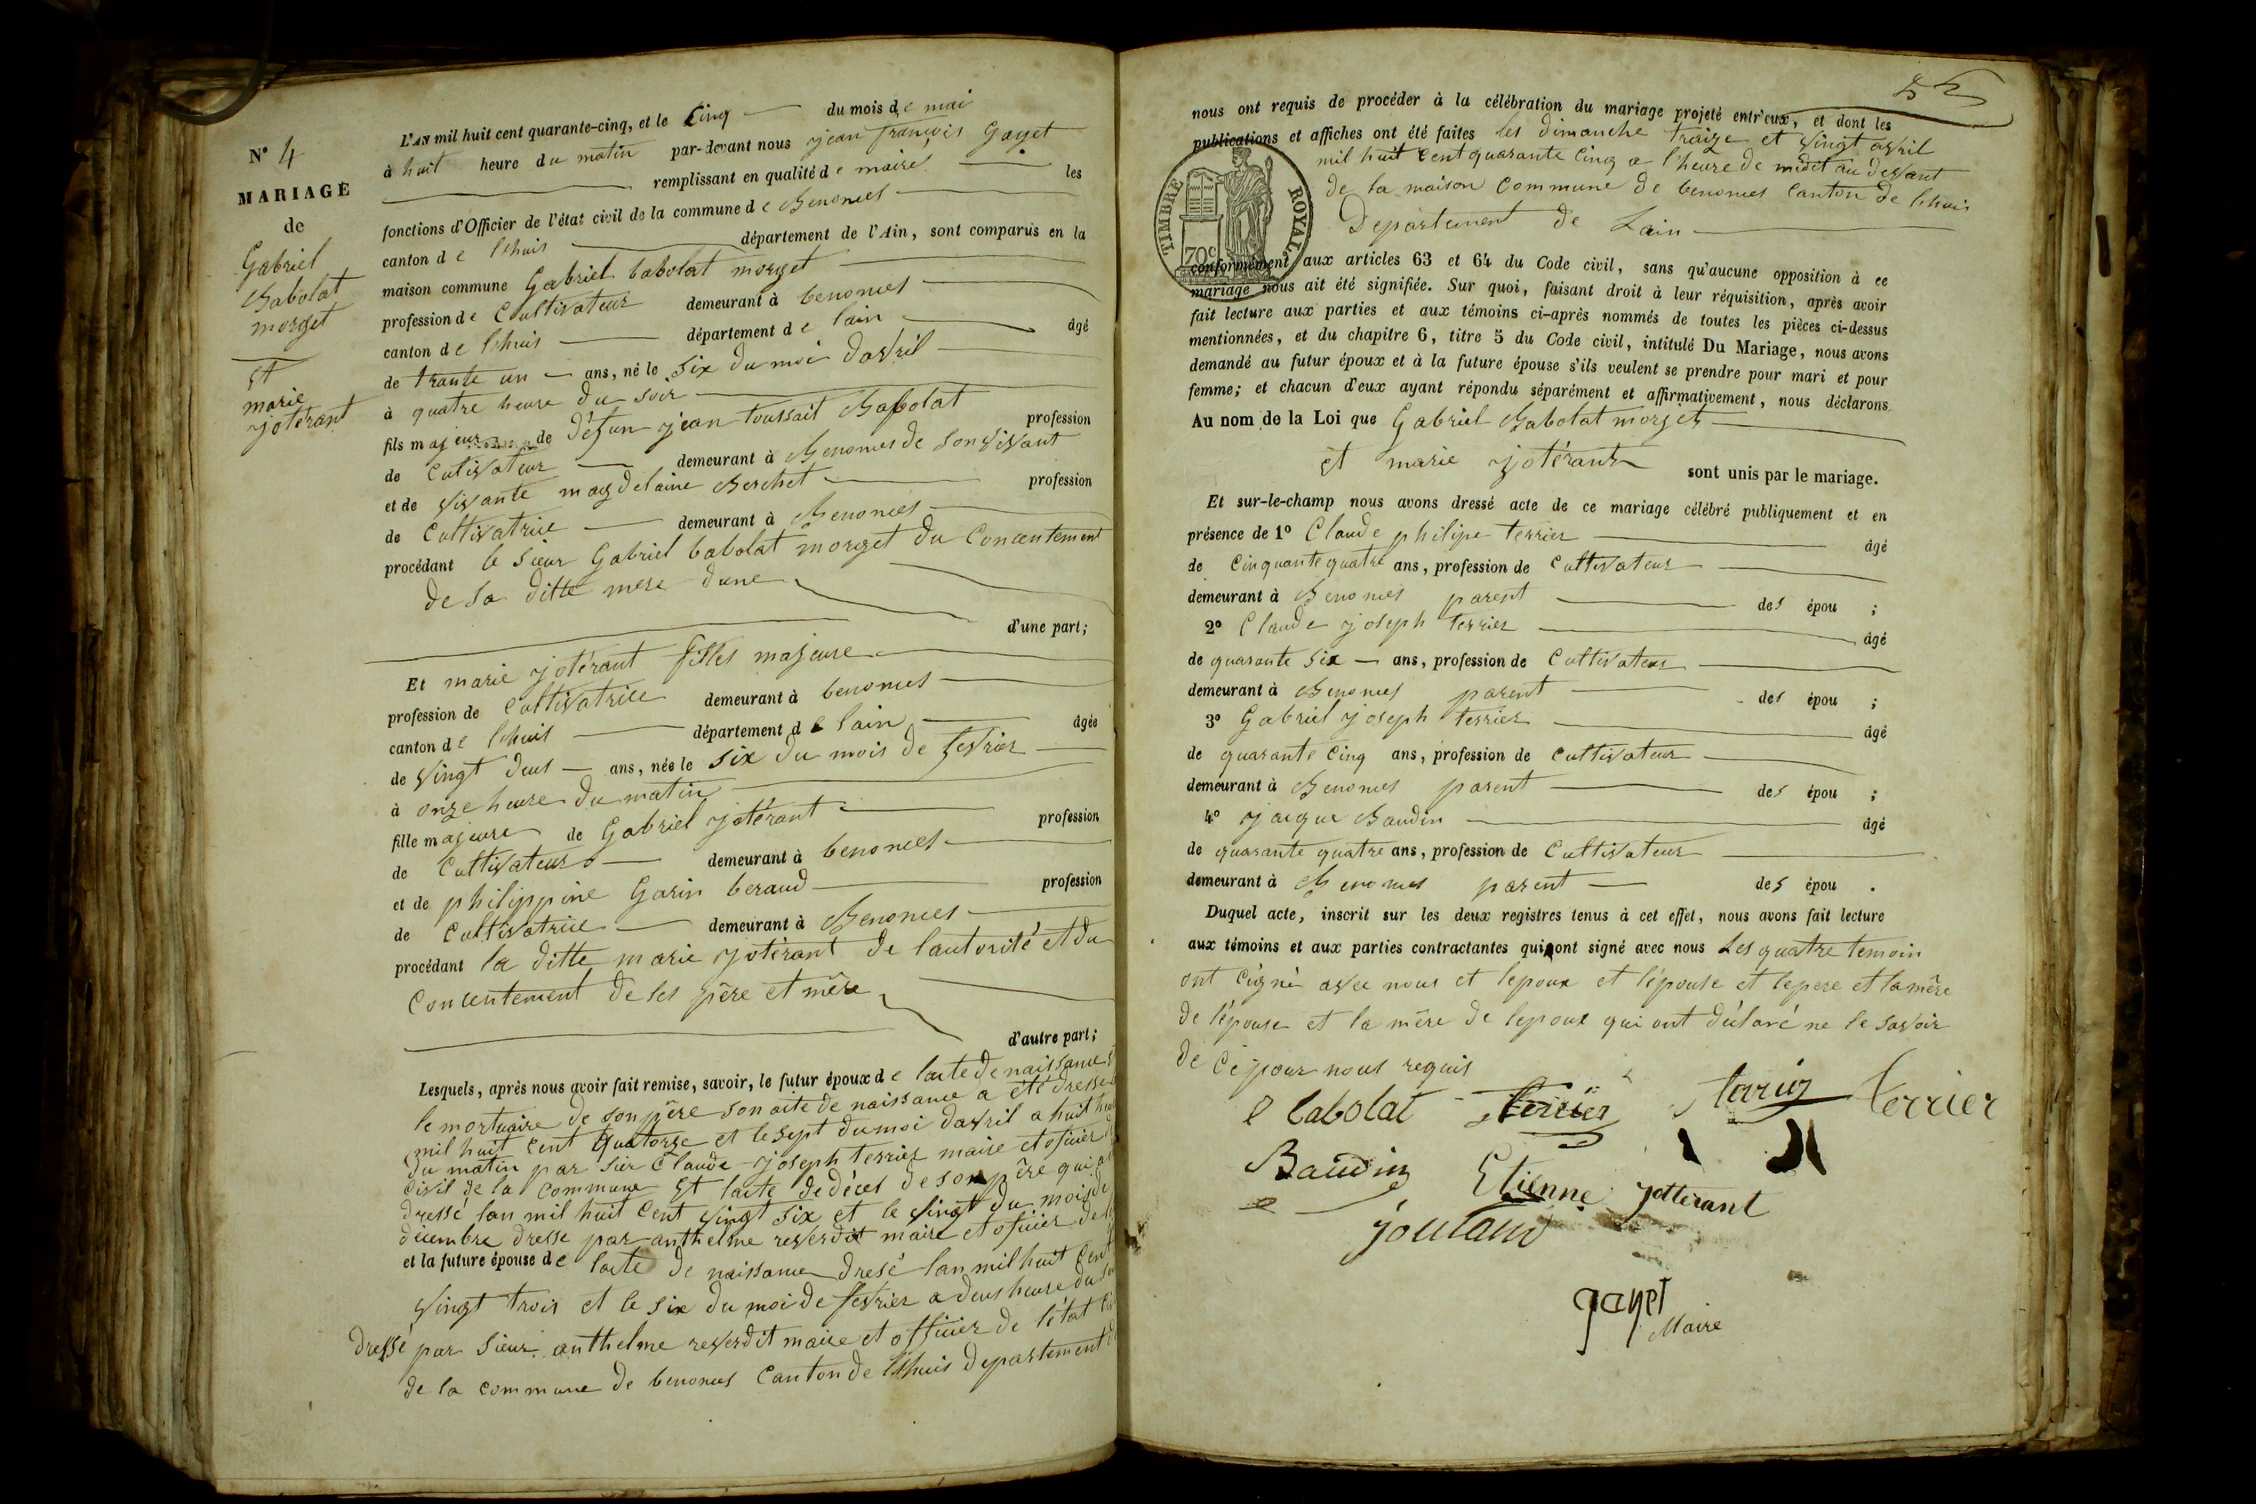 N° 4
MARIAGE
de
Gabriel
Babolat
morget
Et
marie
jotérant
L'AN mil huit cent quarante-cinq, et le Cinq du mois de mai
à huit heure du matin par-devant nous jean françois Gayet
remplissant en qualité de maire les
fonctions d'Officier de l'état civil de la commune de Benonces
canton de lhuis département de l'Ain, sont comparus en la
maison commune Gabriel babolat morget
profession de Cultivateur demeurant à benonces
canton de lhuis département de lain âgé
de trante un ans, né le six du moi davril
à quatre heure du soir
fils majeur de défun jean toussait Babolat profession
de Cutivateur demeurant à Benonces de son vivant
et de vivante magdelaine Berchet profession
de Cultivatrice demeurant à Benonces
procédant le sieur Gabriel babolat morget du Concentement
de sa ditte mere dune
d'une part;
Et marie jotérant filles majeure
profession de Cultivatrice demeurant à benonces
canton de lhuis département de lain âgée
de vingt deus ans, née le six du mois de fevrier
à onze heure du matin
fille majeure de Gabriel jotérant profession
de Cultivateur demeurant à benonces
et de philippine Garin beraud profession
de Cultivatrice demeurant à Benonces
procédant la ditte marie jotérant de lautorité et du
Concentement de ses père et mère
d'autre part;
Lesquels, après nous avoir fait remise, savoir, le futur époux de lacte de naissance
le mortuaire de son père son acte de naissance a été dressé
mil huit cent quatorze et le sept du moi davril a huit
du matin par sier Claude joseph terrier maire et oficier
civil de la commune Et lacte de déces de son père qui
dressé lan mil huit cent vingt six et le vingt du mois de
décembre dresse par anthelme reverdit maire et oficier de
et la future épouse de lacte de naissance dresé lan mil huit cent
vingt trois et le six du moi de fevrier a deus heure du
dressé par sieur anthelme reverdit maire et officier de létat
de la commune de benonces Canton de lhuis departement
nous ont requis de procéder à la célébration du mariage projeté entr'eux, et dont les
publications et affiches ont été faites les dimanche traize et vingt avril
mil huit cent quarante cinq a l'heure de midit au devant
de la maison commune de benonces canton de lhuis
Département de Lain
TIMBRE ROYAL
70c
conformément aux articles 63 et 64 du Code civil, sans qu'aucune opposition à ce
mariage nous ait été signifiée. Sur quoi, faisant droit à leur réquisition, après avoir
fait lecture aux parties et aux témoins ci-après nommés de toutes les pièces ci-dessus
mentionnées, et du chapitre 6, titre 5 du Code civil, intitulé Du Mariage, nous avons
demandé au futur époux et à la future épouse s'ils veulent se prendre pour mari et pour
femme; et chacun d'eux ayant répondu séparément et affirmativement, nous déclarons
Au nom de la Loi que Gabriel Babolat morget
et marie jotérant sont unis par le mariage.
Et sur-le-champ nous avons dressé acte de ce mariage célébré publiquement et en
présence de 1° Claude philipe terrier âgé
de Cinquante quatre ans, profession de Cultivateur
demeurant à Benonces parent des épou ;
2° Claude joseph terrier âgé
de quarante six ans, profession de Cultivateur
demeurant à Benonces parent des épou ;
3° Gabriel joseph terrier âgé
de quarante cinq ans, profession de Cultivateur
demeurant à Benonces parent des épou ;
4° jacque Baudin âgé
de quarante quatre ans, profession de Cultivateur
demeurant à Benonces parent des épou .
Duquel acte, inscrit sur les deux registres tenus à cet effet, nous avons fait lecture
aux témoins et aux parties contractantes qui ont signé avec nous Les quatre temoin
ont cigné avec nous et lepoux et l'épouse et lepere et la mère
de l'épouse et la mère de lepoux qui ont déclaré ne le savoir
de ce pour nous requis
babolat terrier terrier terrier
Baudin Etienne jotterant
gayet
Maire